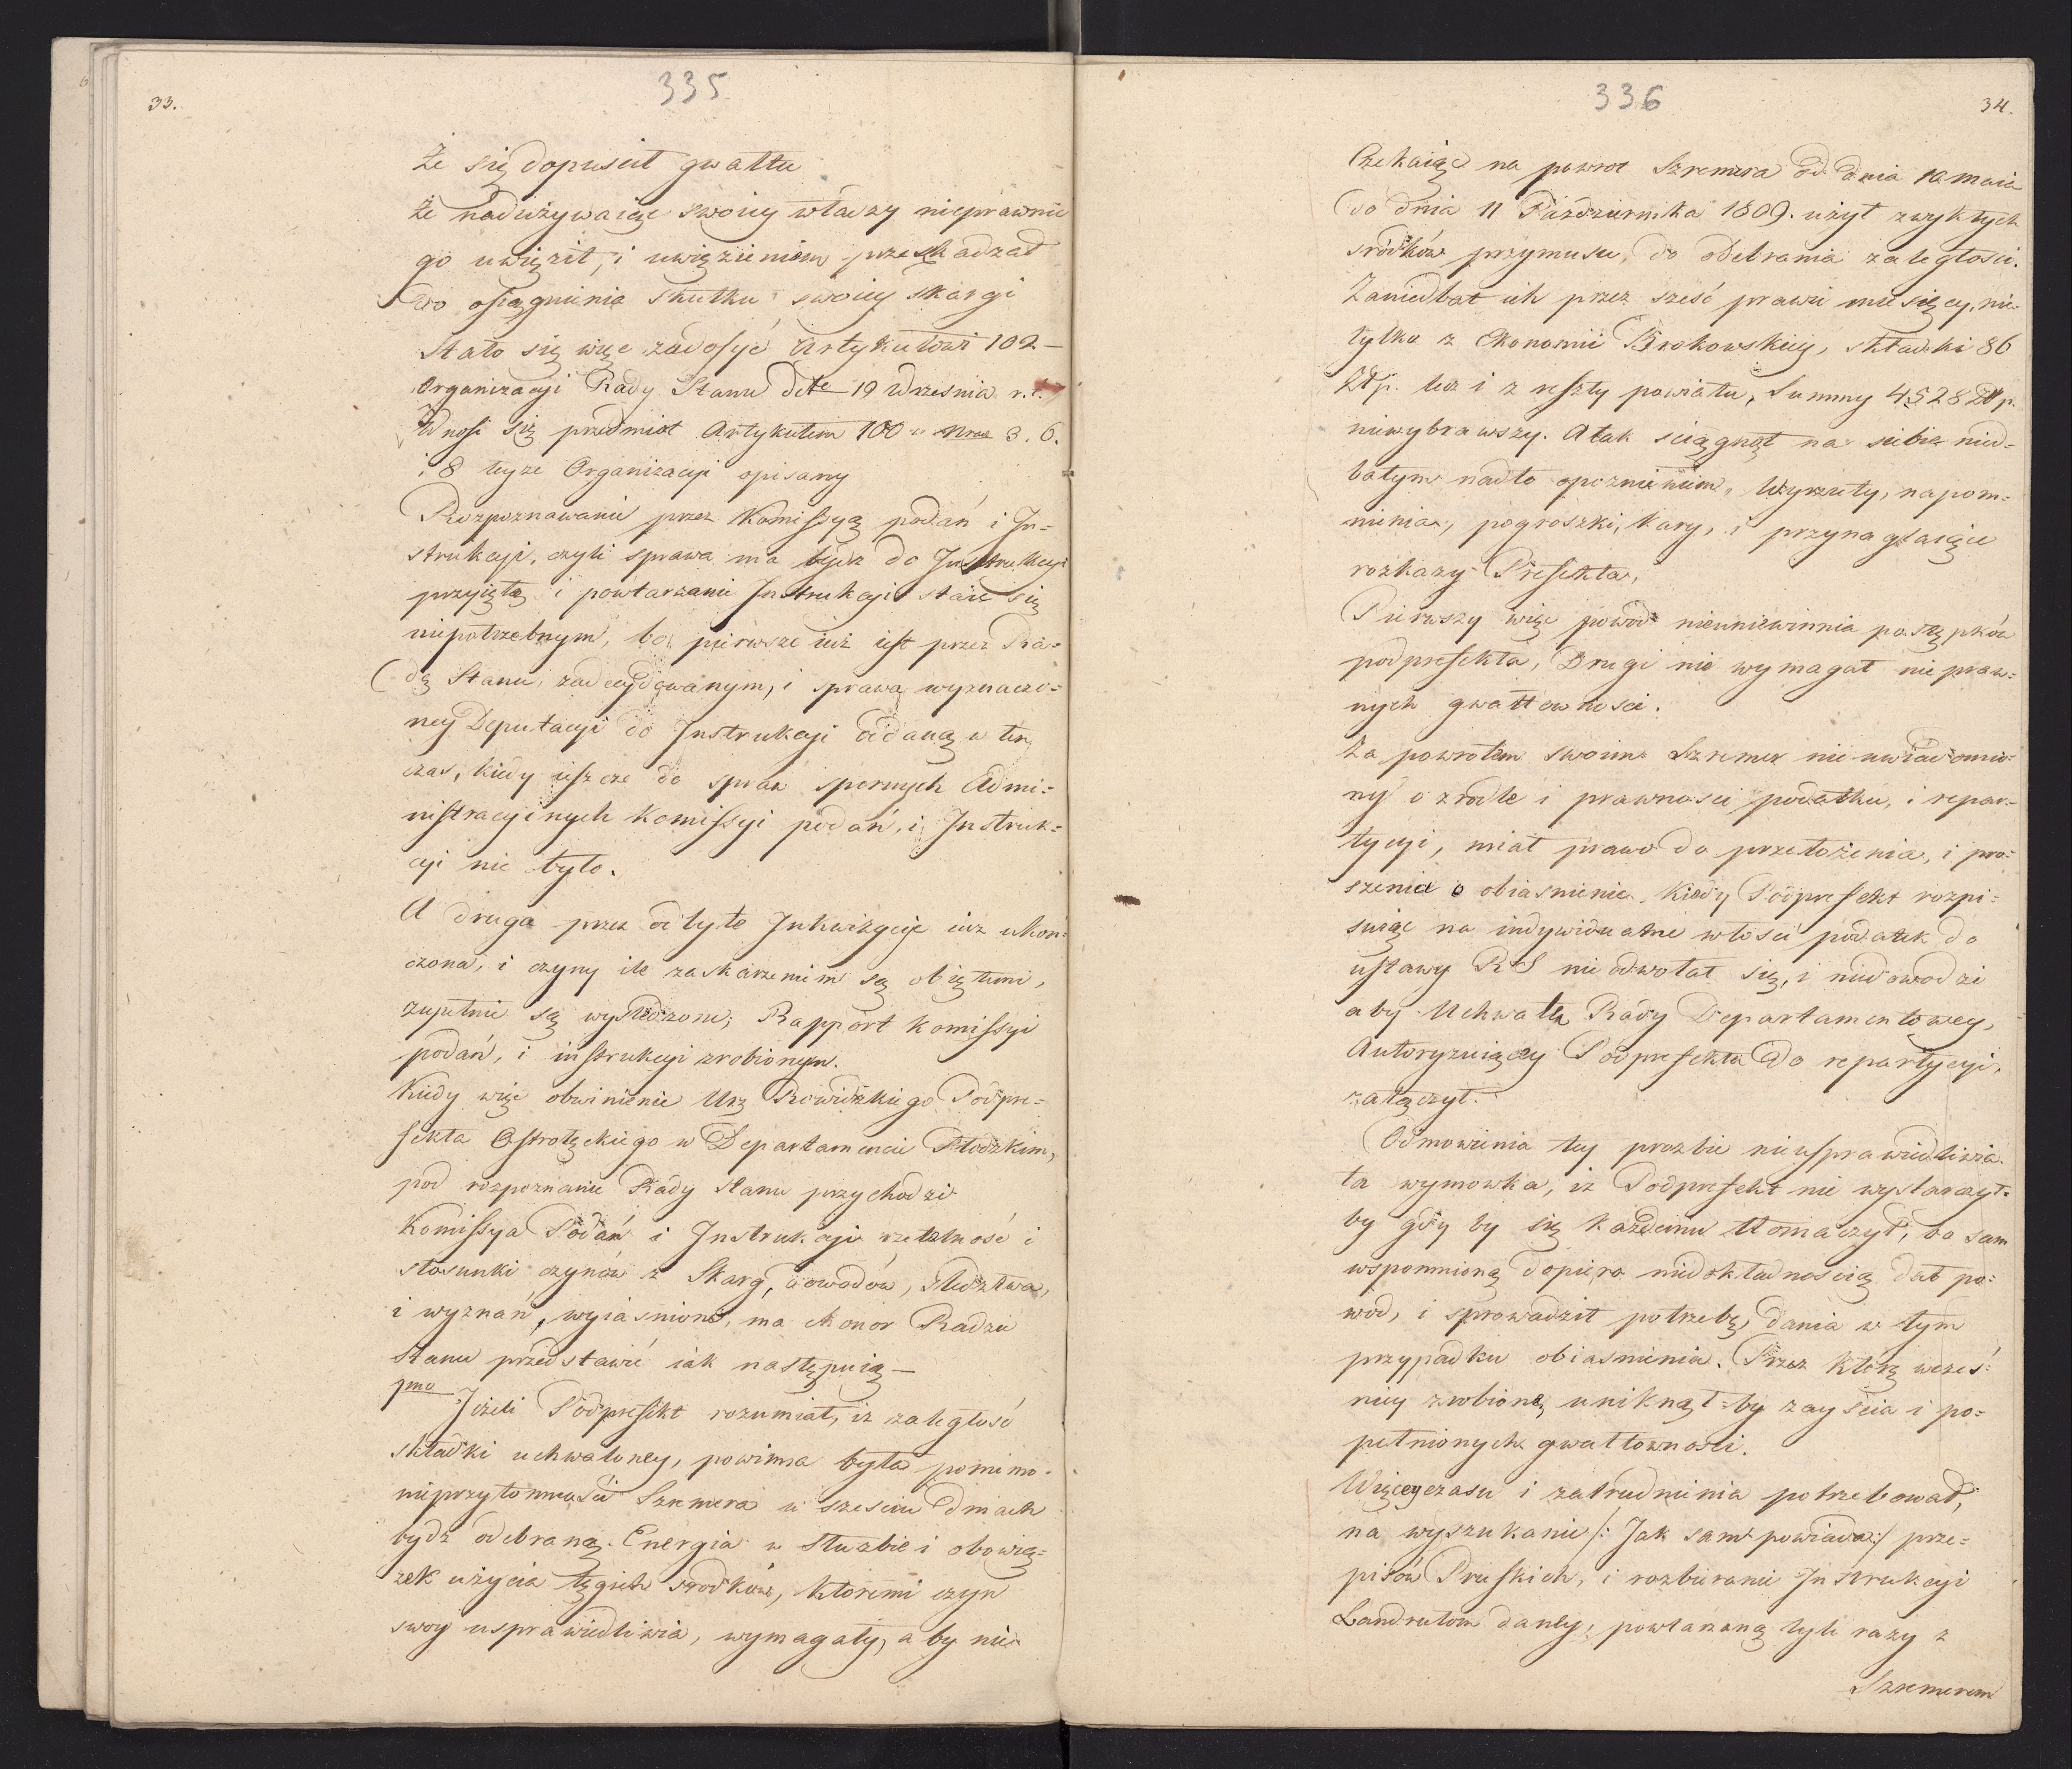 335
33.
Że się dopuścił gwałtu
Że nadużywaiąc swoiey władzy nieprawnie
go uwięził, i uwięzieniem przeszkadzał
do osiągnienia skutku swoiey skargi
Stało się więc zadosyć Artykułowi 102 —
Organizacyi Rady Stanu dtte 19 Września r. t.
Wnosi się przedmiot Artykułem 100 Nris 3. 6.
i 8 teyże Organizacyi opisany
Rozpoznawanie przez Komissyą podań i In=
strukcyi, czyli sprawa ma bydź do Instrukcyi
przyiętą i powtarzanie Instrukcyi staie się
niepotrzebnym, bo pierwsze iuż iest przez Ra=
dę Stanu zadecydowanym, i sprawa wyznaczo=
ney Deputacyi do Instrukcyi oddaną w ten
czas, kiedy ieszcze do spraw spornych Admi=
nistracyinych Komissyi podań, i Instruk=
cyi nie było.
A druga przez odbyte Inkwizycye iuż ukoń=
czona, i czyny ile zaskarżeniem są obiętemi,
zupełnie są wyśledzone; Rapport Komissyi
podań, i instrukcyi zrobionym.
Kiedy więc obwinienie Urz Podpre=
fekta Ostrołęckiego w Departamencie Płockim,
pod rozpoznanie Rady Stanu przychodzi
Komissya Podań i Instrukcyi rzetelność i
stosunki czynów z Skarg, dowodów, śledztwa,
i wyznań, wyiaśnione, ma Honor Radzie
Stanu przedstawić iak następuią —
pmo Jeżeli Podprefekt rozumiał, iż zaległość
składki uchwaloney, powinna była pomimo
nieprzytomności Szremera w sześciu dniach
bydź odebraną. Energia w służbie i obowią=
zek użycia tęgich srodków, któremi czyn
swoy usprawiedliwia, wymagały, aby nie
336
34.
Czekaiąc na powrot Szremera od dnia 10 maia
do dnia 11 Października 1809. użył zwykłych
srodków przymusu, do odebrania zaległości.
Zaniedbał ich przez sześć prawie miesięcy, nie=
tylko z Ekonomii Brokowskiey, składki 86
Złp. lecz i z reszty powiatu, Summy 4528 Złp.
niewybrawszy. A tak ściągnął na siebie nied=
bałym nadto opoznieniem, Wyrzuty, napom=
nienia, pogroszki, kary, i przynaglaiące
rozkazy Prefekta,
Pierwszy więc powód nieuniewinnia postępków
podprefekta, Drugi nie wymagał nie praw=
nych gwałtowności.
Za powrotem swoim Szremer nieuwiadomio=
ny o zrodle i prawności podatku, i repar=
tycyi, miał prawo do przełożenia, i pro=
szenia o obiasnienie. Kiedy Podprefekt rozpi=
suiąc na indywidualne włości podatek do
ustawy RS nie odwołał się, i niedowodzi
aby Uchwałę Rady Departamentowey,
Autoryzuiącey Podprefekta do repartycyi,
załączył.
Odmowienia tey prozbie nieusprawiedliwia=
ła wymowka, iż Podprefekt nie wystarczył=
by gdy by się każdemu tłomaczył, bo sam
wspomnioną dopiero niedokładnością dał po=
wód, i sprowadził potrzebę, dania w tym
przypadku obiasnienia. Przez którą wczes=
niey zrobioną uniknął=by zayscia i po=
pełnionych gwałtowności.
Więcey czasu i zatrudnienia potrzebował,
na wyszukanie /: Jak sam powiada :/ prze=
pisów Pruskich, i rozbieranie Instrukcyi
Landratom daney, powtarzaną tyle razy z
Szremerem